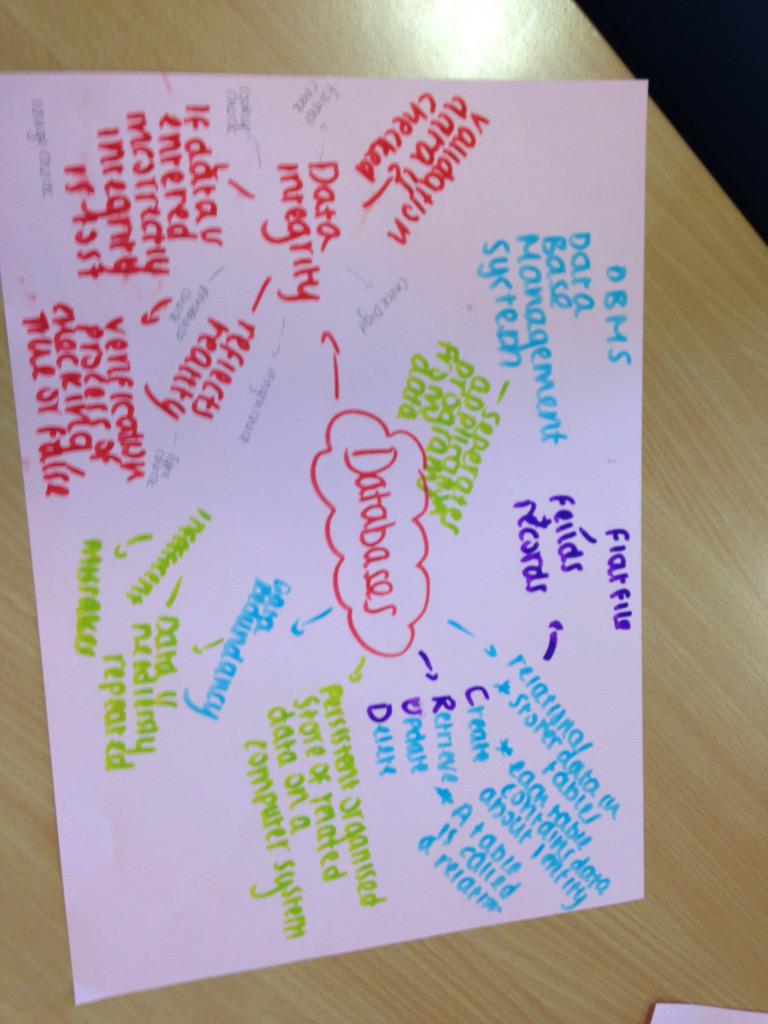 DBMS
Data
Base
Management
System
Validation
data is
checked
Data
integrity
If data is
entered
incorrectly
integrity
is lost
reflects
reality
verification
process of
checking
true or false
format
check
check digit
length check
type
check
- Seperates
application
programs
from
data
Databases
flatfile
feilds
records
relational
* Stores data in
tables
* each table
contains data
about 1 entity
* A table
is called
a relation
Create
Retrieve
Update
Delete
Persistent organised
Store of related
data on a
computer system
Data
redundancy
Data is
needlessly
repeated
mistakes